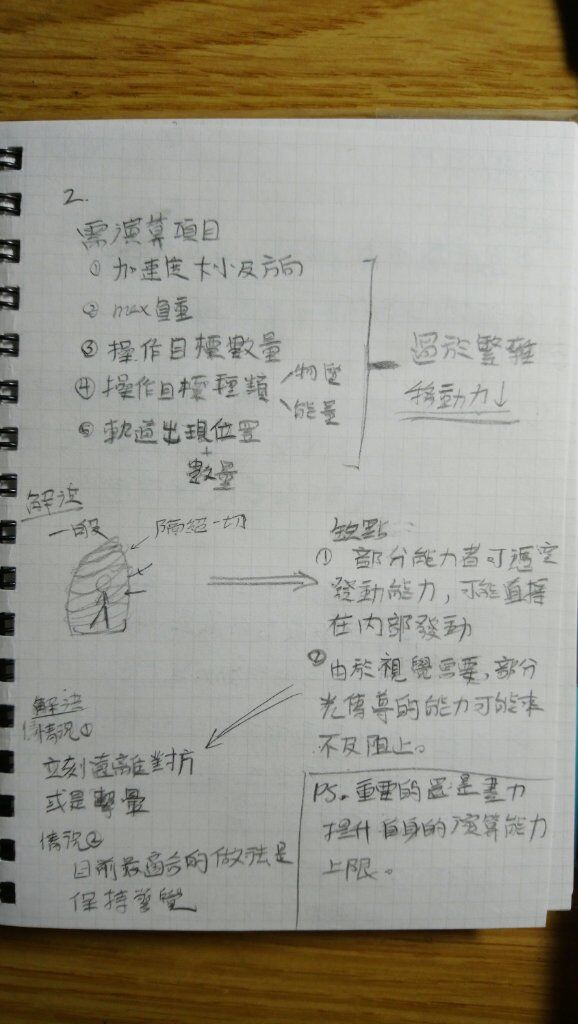 2.
需演算項目
① 加速度大小及方向
② max負重
③ 操作目標數量
④ 操作目標種類
物質
能量
⑤ 軌道出現位置
+
數量
過於繁雜
移動力↓
解法
一般
隔絕一切
缺點:
① 部分能力者可憑空
發動能力,可能直接
在內部發動
② 由於視覺需要,部分
光傳導的能力可能來
不及阻止。
解法
情況①
立刻遠離對方
或是擊暈
情況②
目前最適合的做法是
保持警覺
PS. 重要的還是盡力
提升自身的演算能力
上限。